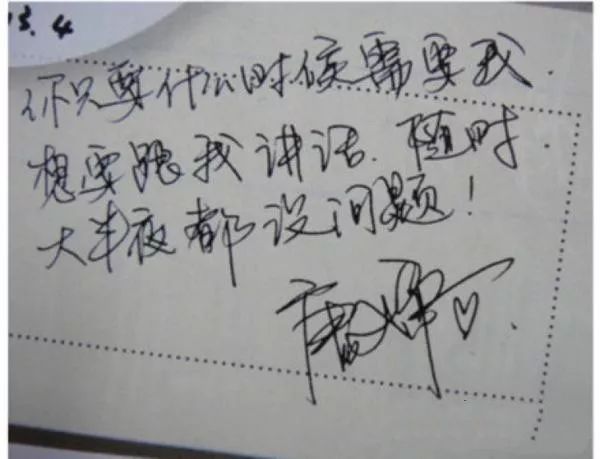 3.4
你只要什么时候需要我.
想要跟我讲话.随时
大半夜都没问题!